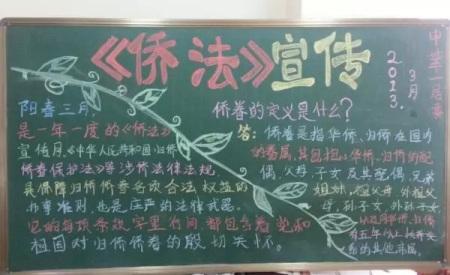 《侨法》宣传
2013.3月
中芸一居委
阳春三月,
是一年一度的《侨法》
宣传月。《中华人民共和国归侨
侨眷保护法》等涉侨法律法规
是保障归侨侨眷各项合法权益的
办事准则,也是庄严的法律武器。
它的每项条款字里行间都包含着党和
祖国对归侨侨眷的殷切关怀。
侨眷的定义是什么?
答:侨眷是指华侨、归侨在国内
的眷属,其包括:华侨、归侨的配
偶,父母,子女及其配偶,兄弟
姐妹,祖父母,外祖父
母,孙子女,外孙子女,
以及同华侨、归侨
有五年以上扶养关
系的其他亲属。